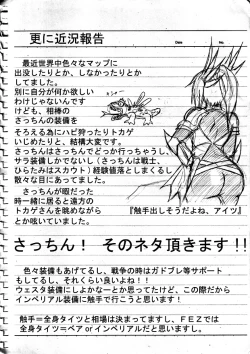 更に近況報告
Date
No.
最近世界中色々なマップに
出没したりとか、しなかったりとか
してました。
別に自分が何か欲しい
わけじゃないんです
けども、相棒の
さっちんの装備を
そろえる為にハピ狩ったりトカゲ
いじめたりと、結構大変です。
さっちんはさっちんでどっか行っちゃうし、
サラ装備しかでないし(さっちんは戦士、
ひらたみはスカウト)経験値落としまくるし
散々な目にあってました。
さっちんが暇だった
時一緒に居ると遠方の
トカゲさんを眺めながら
とか呟いていました。
『触手出しそうだよね、アイツ』
さっちん! そのネタ頂きます!!
色々装備もあげてるし、戦争の時はガドブレ等サポート
もしてるし、それくらい良いよね!!
ウェスタ装備にしよかなーとか思ってたけど、この際だから
インペリアル装備に触手で行こうと思います!
触手=全身タイツと相場は決まってますし、FEZでは
全身タイツ=ベアorインペリアルだと思いますし。